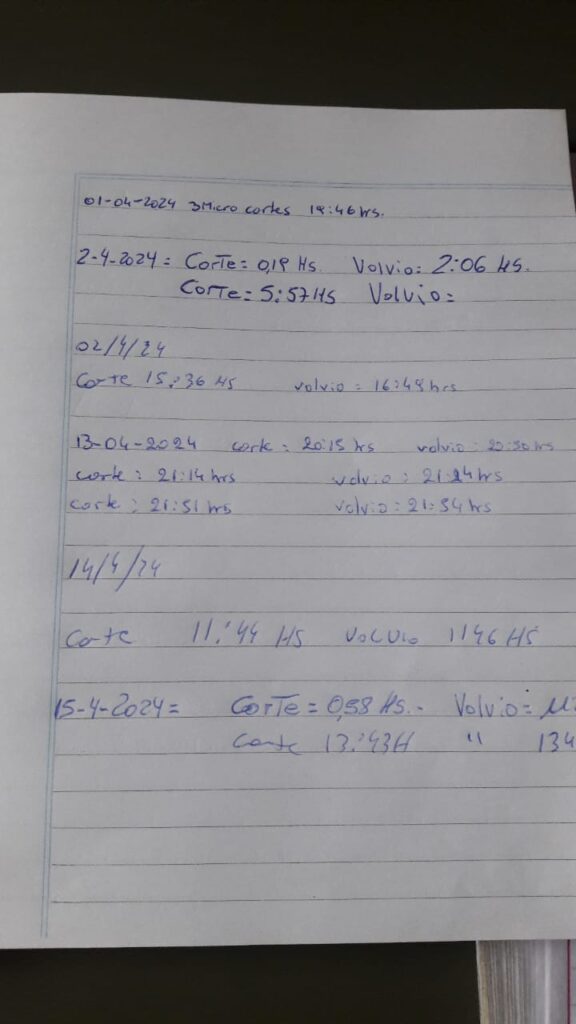 01-04-2024 3 Micro cortes 19:46 hrs.
2-4-2024 = Corte = 0,19 Hs. Volvio = 2:06 Hs.
Corte = 5:57 Hs Volvio =
02/4/24
Corte 15:36 Hs volvio = 16:48 hrs
13-04-2024 corte : 20:15 hrs volvio :
corte : 21:14 hrs volvio : 21:24 hrs
corte : 21:51 hrs volvio : 21:54 hrs
14/4/24
Corte 11:44 HS VOLVIO 1146 HS
15-4-2024 = Corte = 0,58 Hs. - Volvio =
Corte 13:43 H " 134